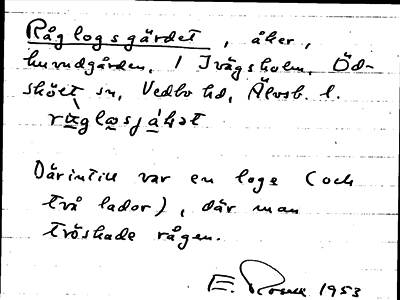 Råglogsgärdet, åker,
huvudgården, 1 Ivägsholm, Öd-
skölt sn, Vedbo hd, Älvsb. l.
Därintill var en loge (och
två lador), där man
tröskade rågen.
E. 1953